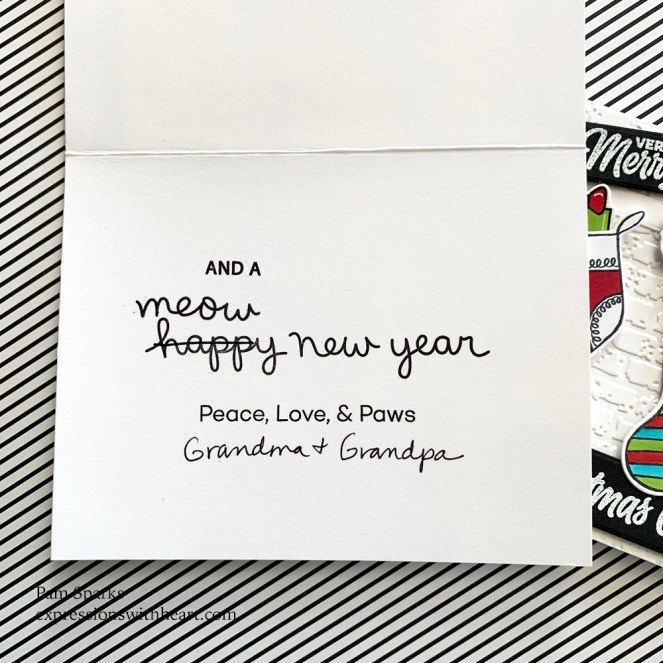 AND A
meow
happy new year
Peace, Love, & Paws
Grandma + Grandpa
VER
Merr
tmas
Pam Sparks
expressionswithheart.com